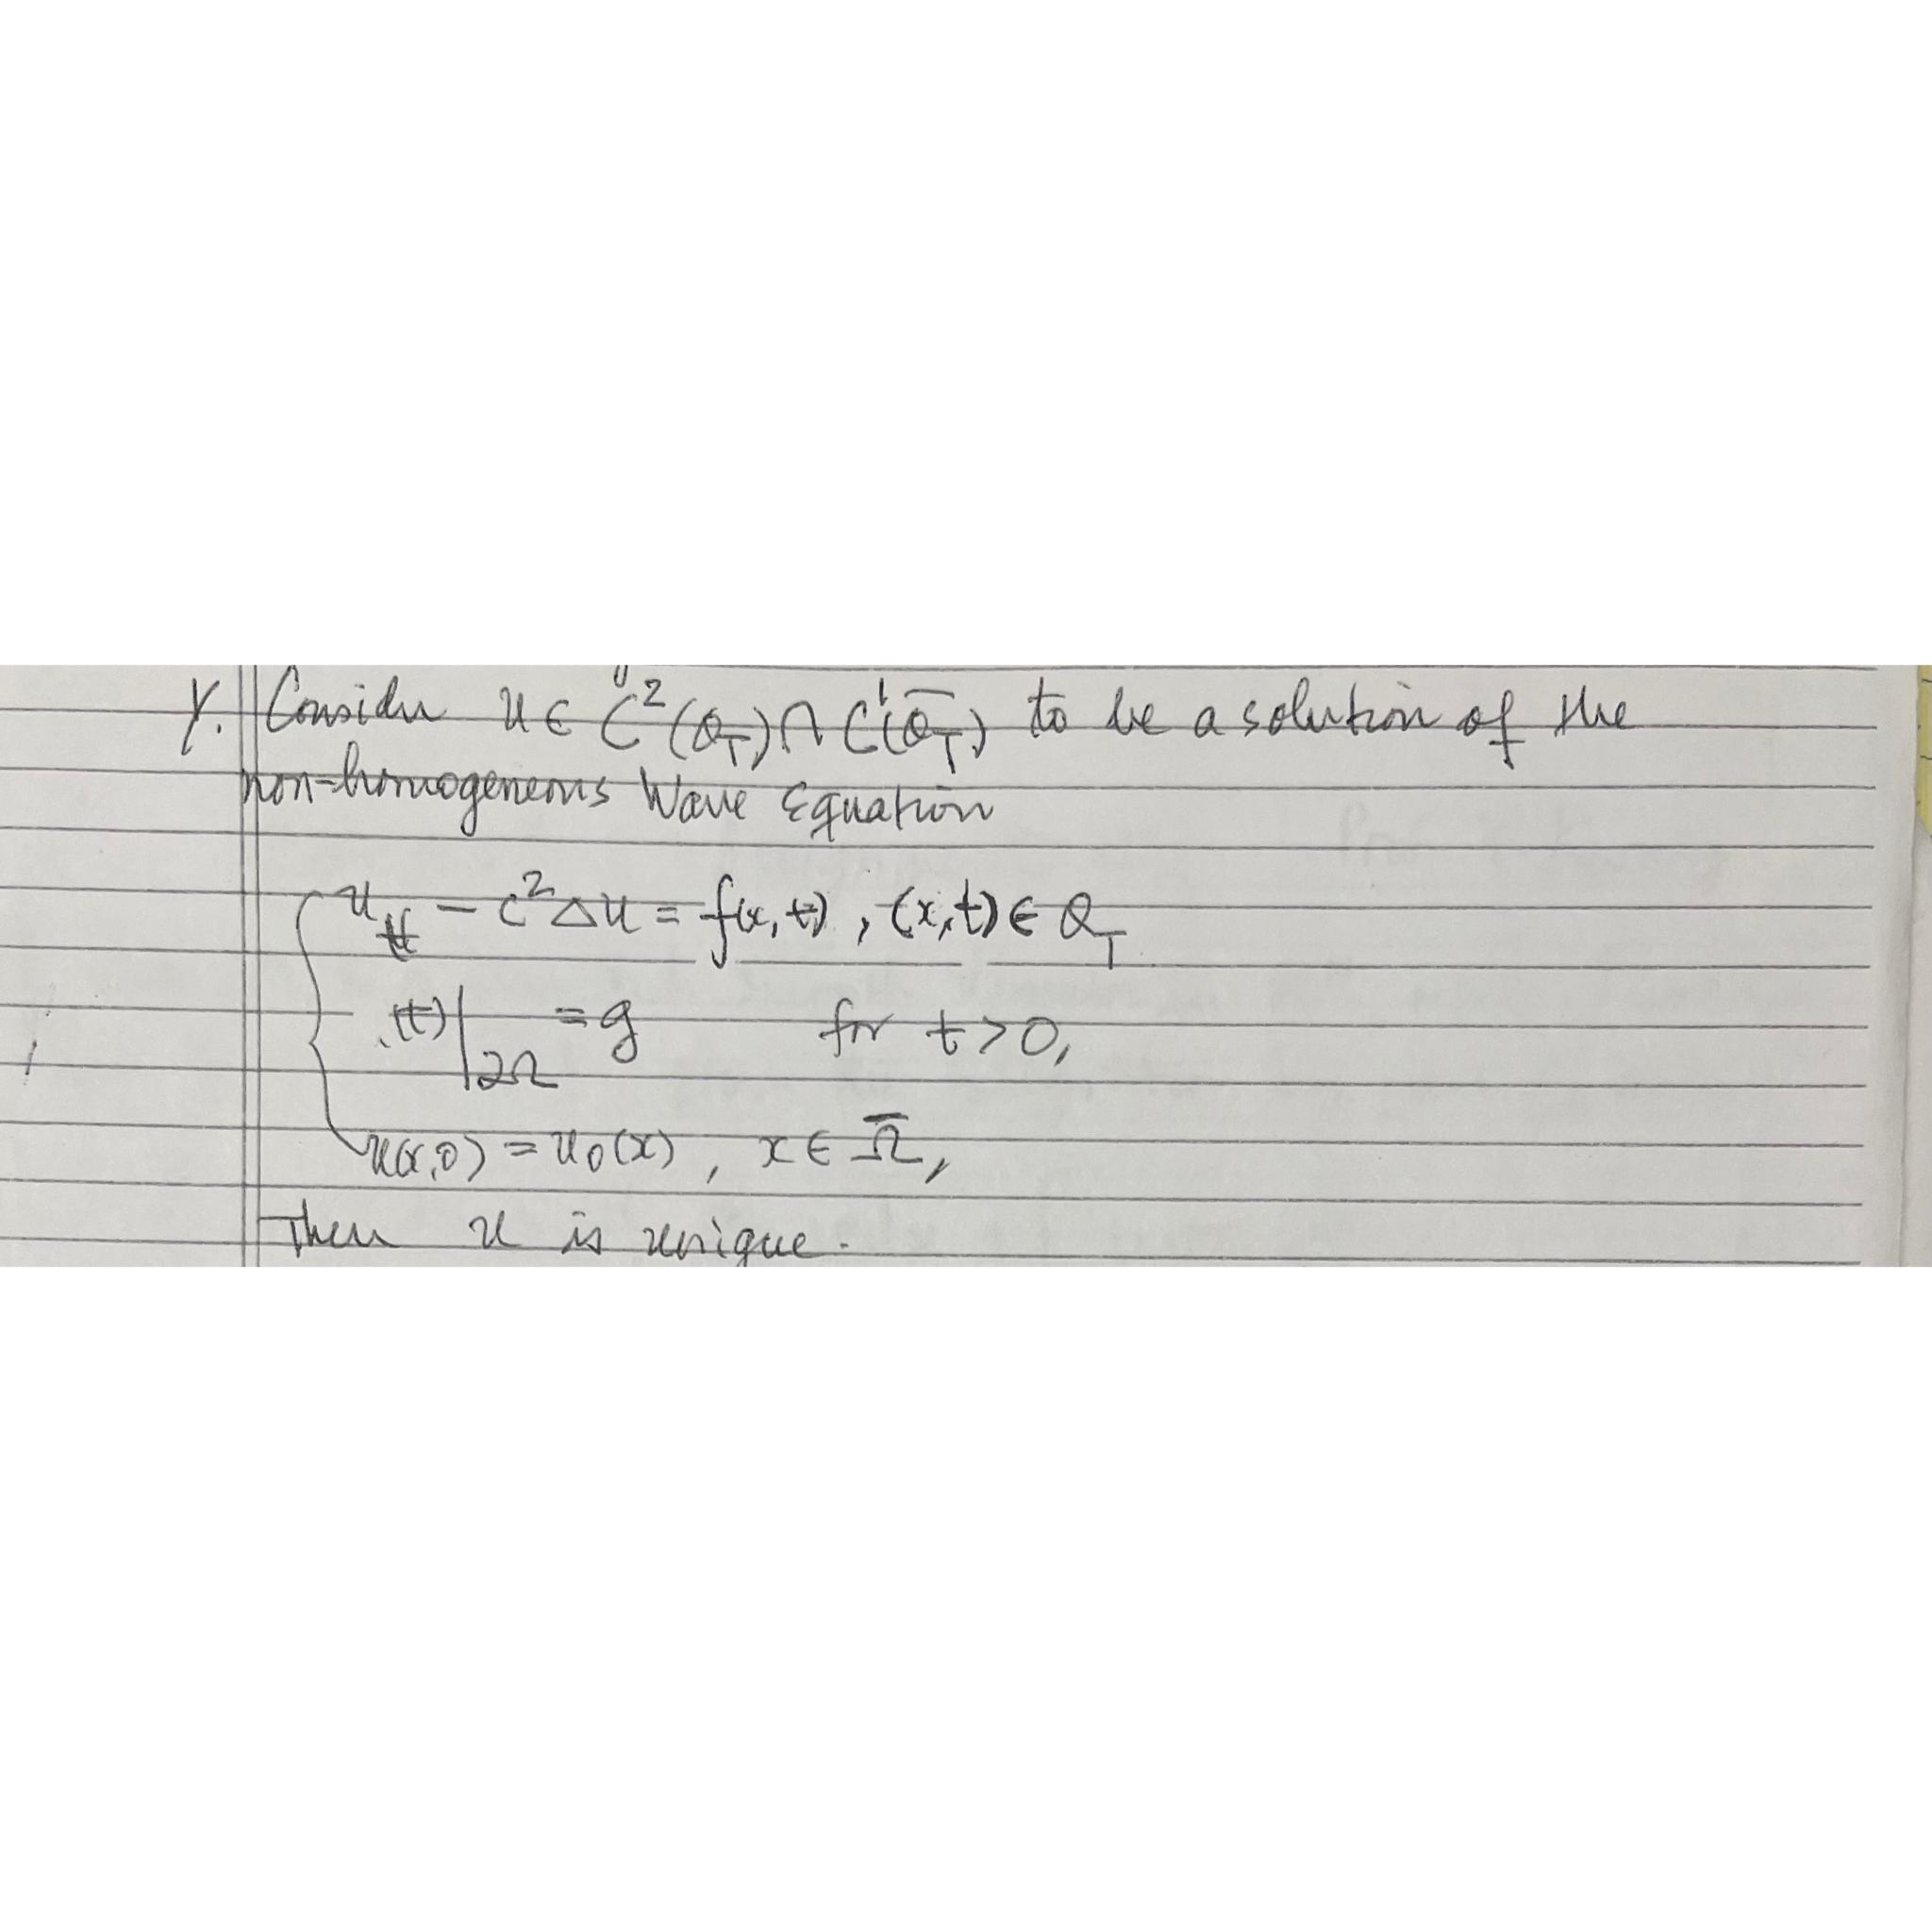 Y. Consider u ∈ C²(Q_T) ∩ C¹(Q̅_T) to be a solution of the
non-homogeneous Wave Equation
u_tt − c²Δu = f(x,t), (x,t) ∈ Q_T
.(t)|_∂Ω = g for t > 0,
u(x,0) = u₀(x), x ∈ Ω̅,
Then u is unique.